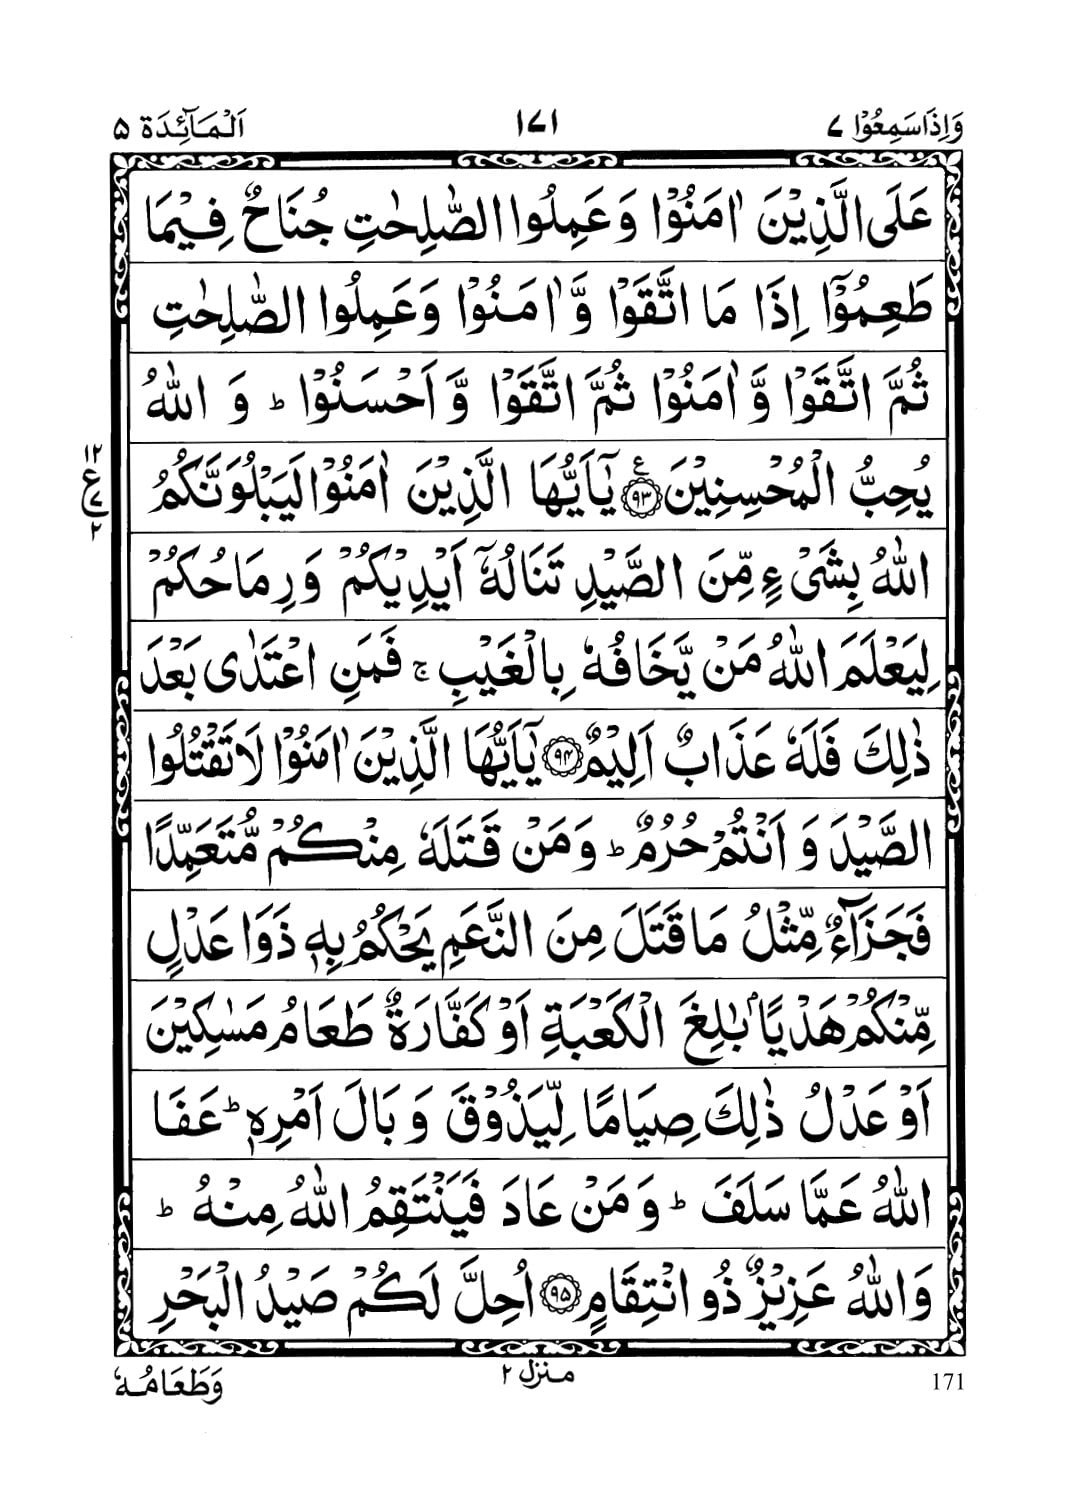 وَاِذَاسَمِعُوۡا ٧
١٧١
اَلۡمَآئِدَة ٥
عَلَى الَّذِيۡنَ اٰمَنُوۡا وَعَمِلُوا الصّٰلِحٰتِ جُنَاحٌ فِيۡمَا
طَعِمُوۡۤا اِذَا مَا اتَّقَوۡا وَّاٰمَنُوۡا وَعَمِلُوا الصّٰلِحٰتِ
ثُمَّ اتَّقَوۡا وَّاٰمَنُوۡا ثُمَّ اتَّقَوۡا وَّاَحۡسَنُوۡا ؕ وَ اللّٰهُ
يُحِبُّ الۡمُحۡسِنِيۡنَ ع ٩٣ يٰۤاَيُّهَا الَّذِيۡنَ اٰمَنُوۡا لَيَبۡلُوَنَّكُمُ
١٢
ع
٧
٢
اللّٰهُ بِشَىۡءٍ مِّنَ الصَّيۡدِ تَنَالُهٗۤ اَيۡدِيۡكُمۡ وَرِمَاحُكُمۡ
لِيَعۡلَمَ اللّٰهُ مَنۡ يَّخَافُهٗ بِالۡغَيۡبِ ۚ فَمَنِ اعۡتَدٰى بَعۡدَ
ذٰلِكَ فَلَهٗ عَذَابٌ اَلِيۡمٌ ٩٤ يٰۤاَيُّهَا الَّذِيۡنَ اٰمَنُوۡا لَا تَقۡتُلُوا
الصَّيۡدَ وَ اَنۡتُمۡ حُرُمٌ ؕ وَمَنۡ قَتَلَهٗ مِنۡكُمۡ مُّتَعَمِّدًا
فَجَزَآءٌ مِّثۡلُ مَا قَتَلَ مِنَ النَّعَمِ يَحۡكُمُ بِهٖ ذَوَا عَدۡلٍ
مِّنۡكُمۡ هَدۡيًاۢ بٰلِغَ الۡكَعۡبَةِ اَوۡ كَفَّارَةٌ طَعَامُ مَسٰكِيۡنَ
اَوۡ عَدۡلُ ذٰلِكَ صِيَامًا لِّيَذُوۡقَ وَبَالَ اَمۡرِهٖ ؕ عَفَا
اللّٰهُ عَمَّا سَلَفَ ؕ وَمَنۡ عَادَ فَيَنۡتَقِمُ اللّٰهُ مِنۡهُ ؕ
وَاللّٰهُ عَزِيۡزٌ ذُو انۡتِقَامٍ ٩٥ اُحِلَّ لَكُمۡ صَيۡدُ الۡبَحۡرِ
171
منزل ٢
وَطَعَامُهٗ